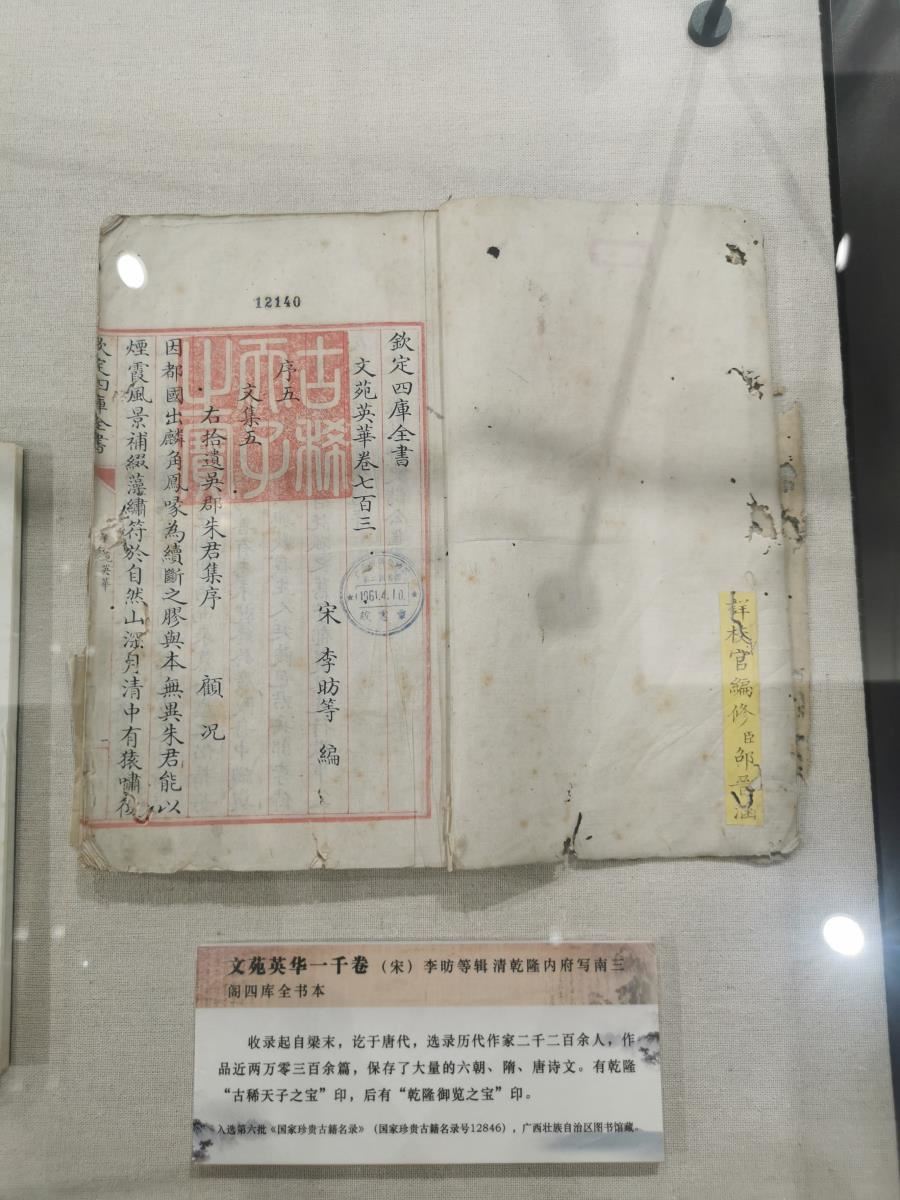 詳校官編修臣邵晉涵
欽定四庫全書
文苑英華卷七百三
宋 李昉等 編
序五
文集五
右拾遺吳郡朱君集序 顧況
因都國出麟角鳳喙為續斷之膠與本無異朱君能以
煙霞風景補綴藻繡符於自然山深月清中有猿嘯復
欽定四庫全書
苑英華
12140
古稀天子之寶
1961.4.10.
文苑英华一千卷（宋）李昉等辑 清乾隆内府写南三
阁四库全书本
收录起自梁末，讫于唐代，选录历代作家二千二百余人，作
品近两万零三百余篇，保存了大量的六朝、隋、唐诗文。有乾隆
“古稀天子之宝”印，后有“乾隆御览之宝”印。
入选第六批《国家珍贵古籍名录》（国家珍贵古籍名录号12846），广西壮族自治区图书馆藏。